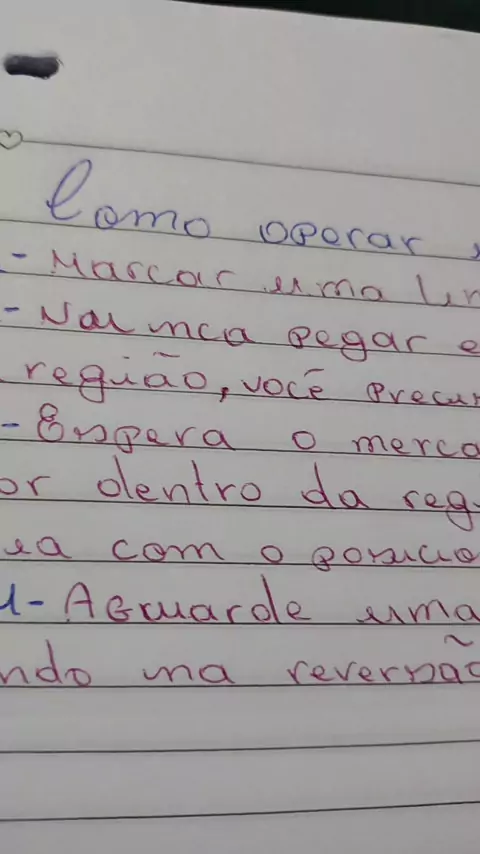 Como operar
- Marcar uma lin
- Naunca pegar e
região, você precur
- Espera o merca
or dentro da reg
ea com o posicio
- Aguarde uma
ndo na reversão